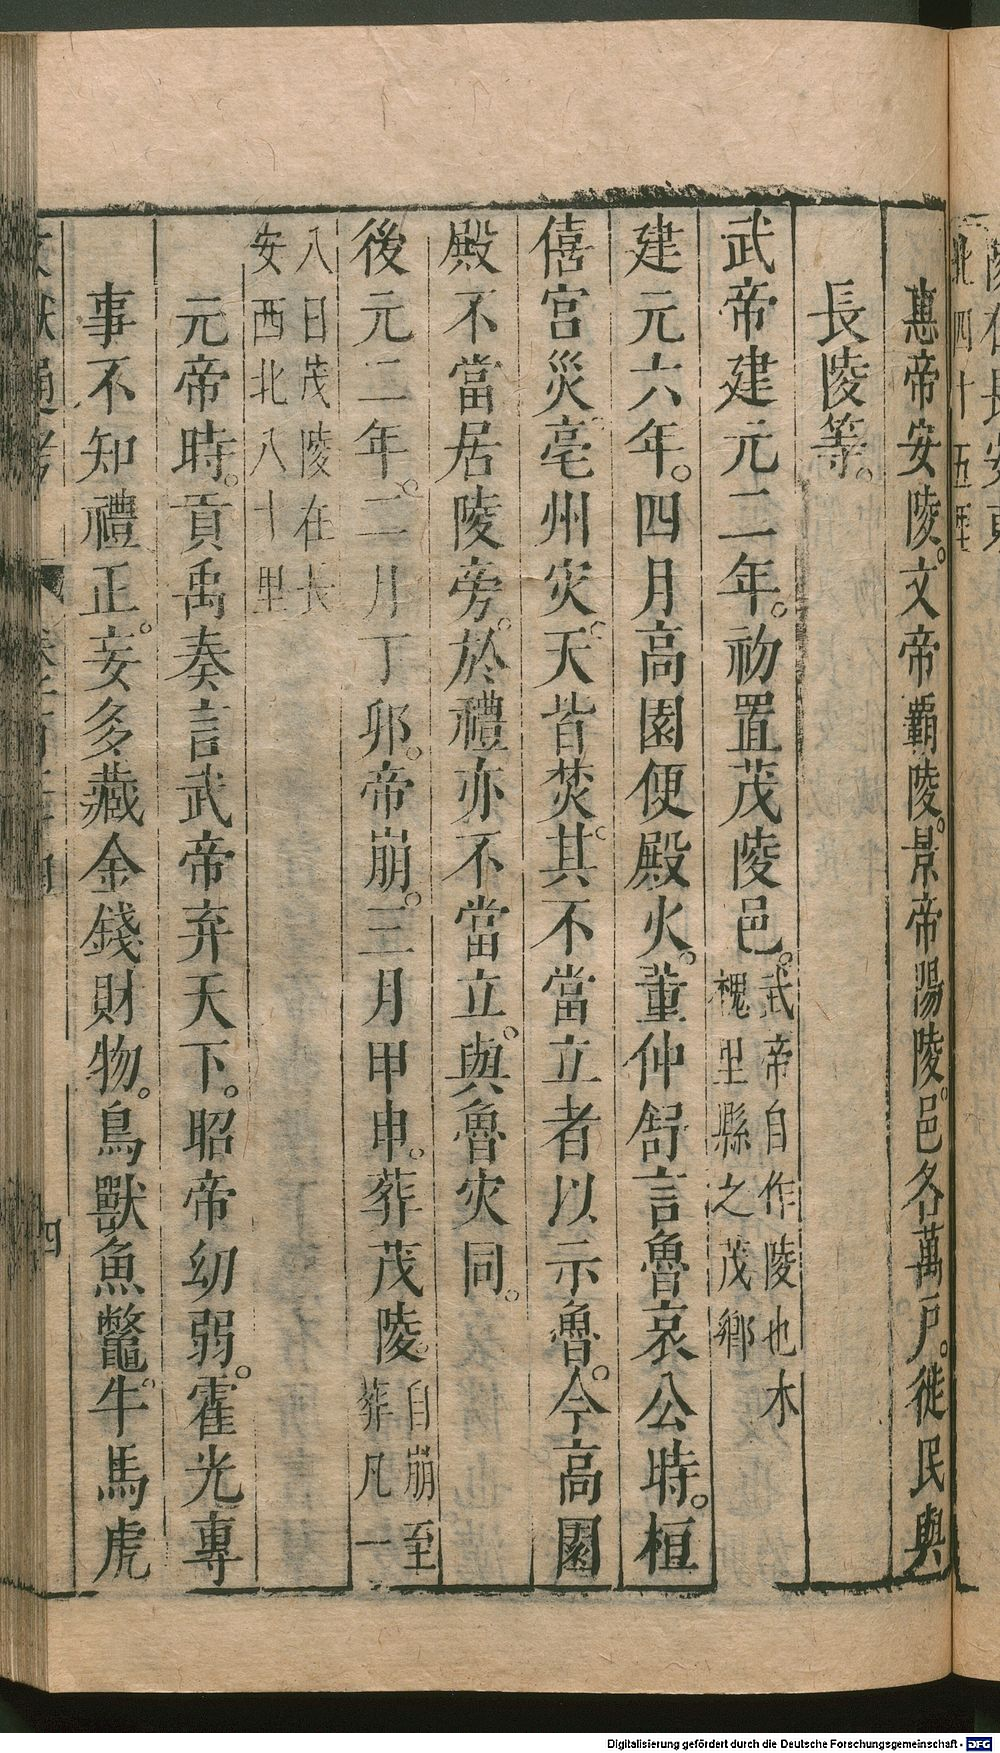 惠帝安陵。文帝霸陵。景帝陽陵。邑各萬戶。徙民與
長陵等。
武帝建元二年。初置茂陵邑。武帝自作陵也本槐里縣之茂鄉
建元六年。四月高園便殿火。董仲舒言魯哀公時。桓
僖宮災。亳州灾。天皆焚。其不當立者以示魯。今高園
殿不當居陵旁。於禮亦不當立。與魯灾同。
後元二年。二月丁卯。帝崩。三月甲申。葬茂陵。自崩至葬凡一
八日茂陵在長安西北八十里
元帝時。貢禹奏言武帝弃天下。昭帝幼弱。霍光專
事不知禮正。妄多藏金錢財物。鳥獸魚鼈。牛馬虎
四
Digitalisierung gefördert durch die Deutsche Forschungsgemeinschaft - DFG